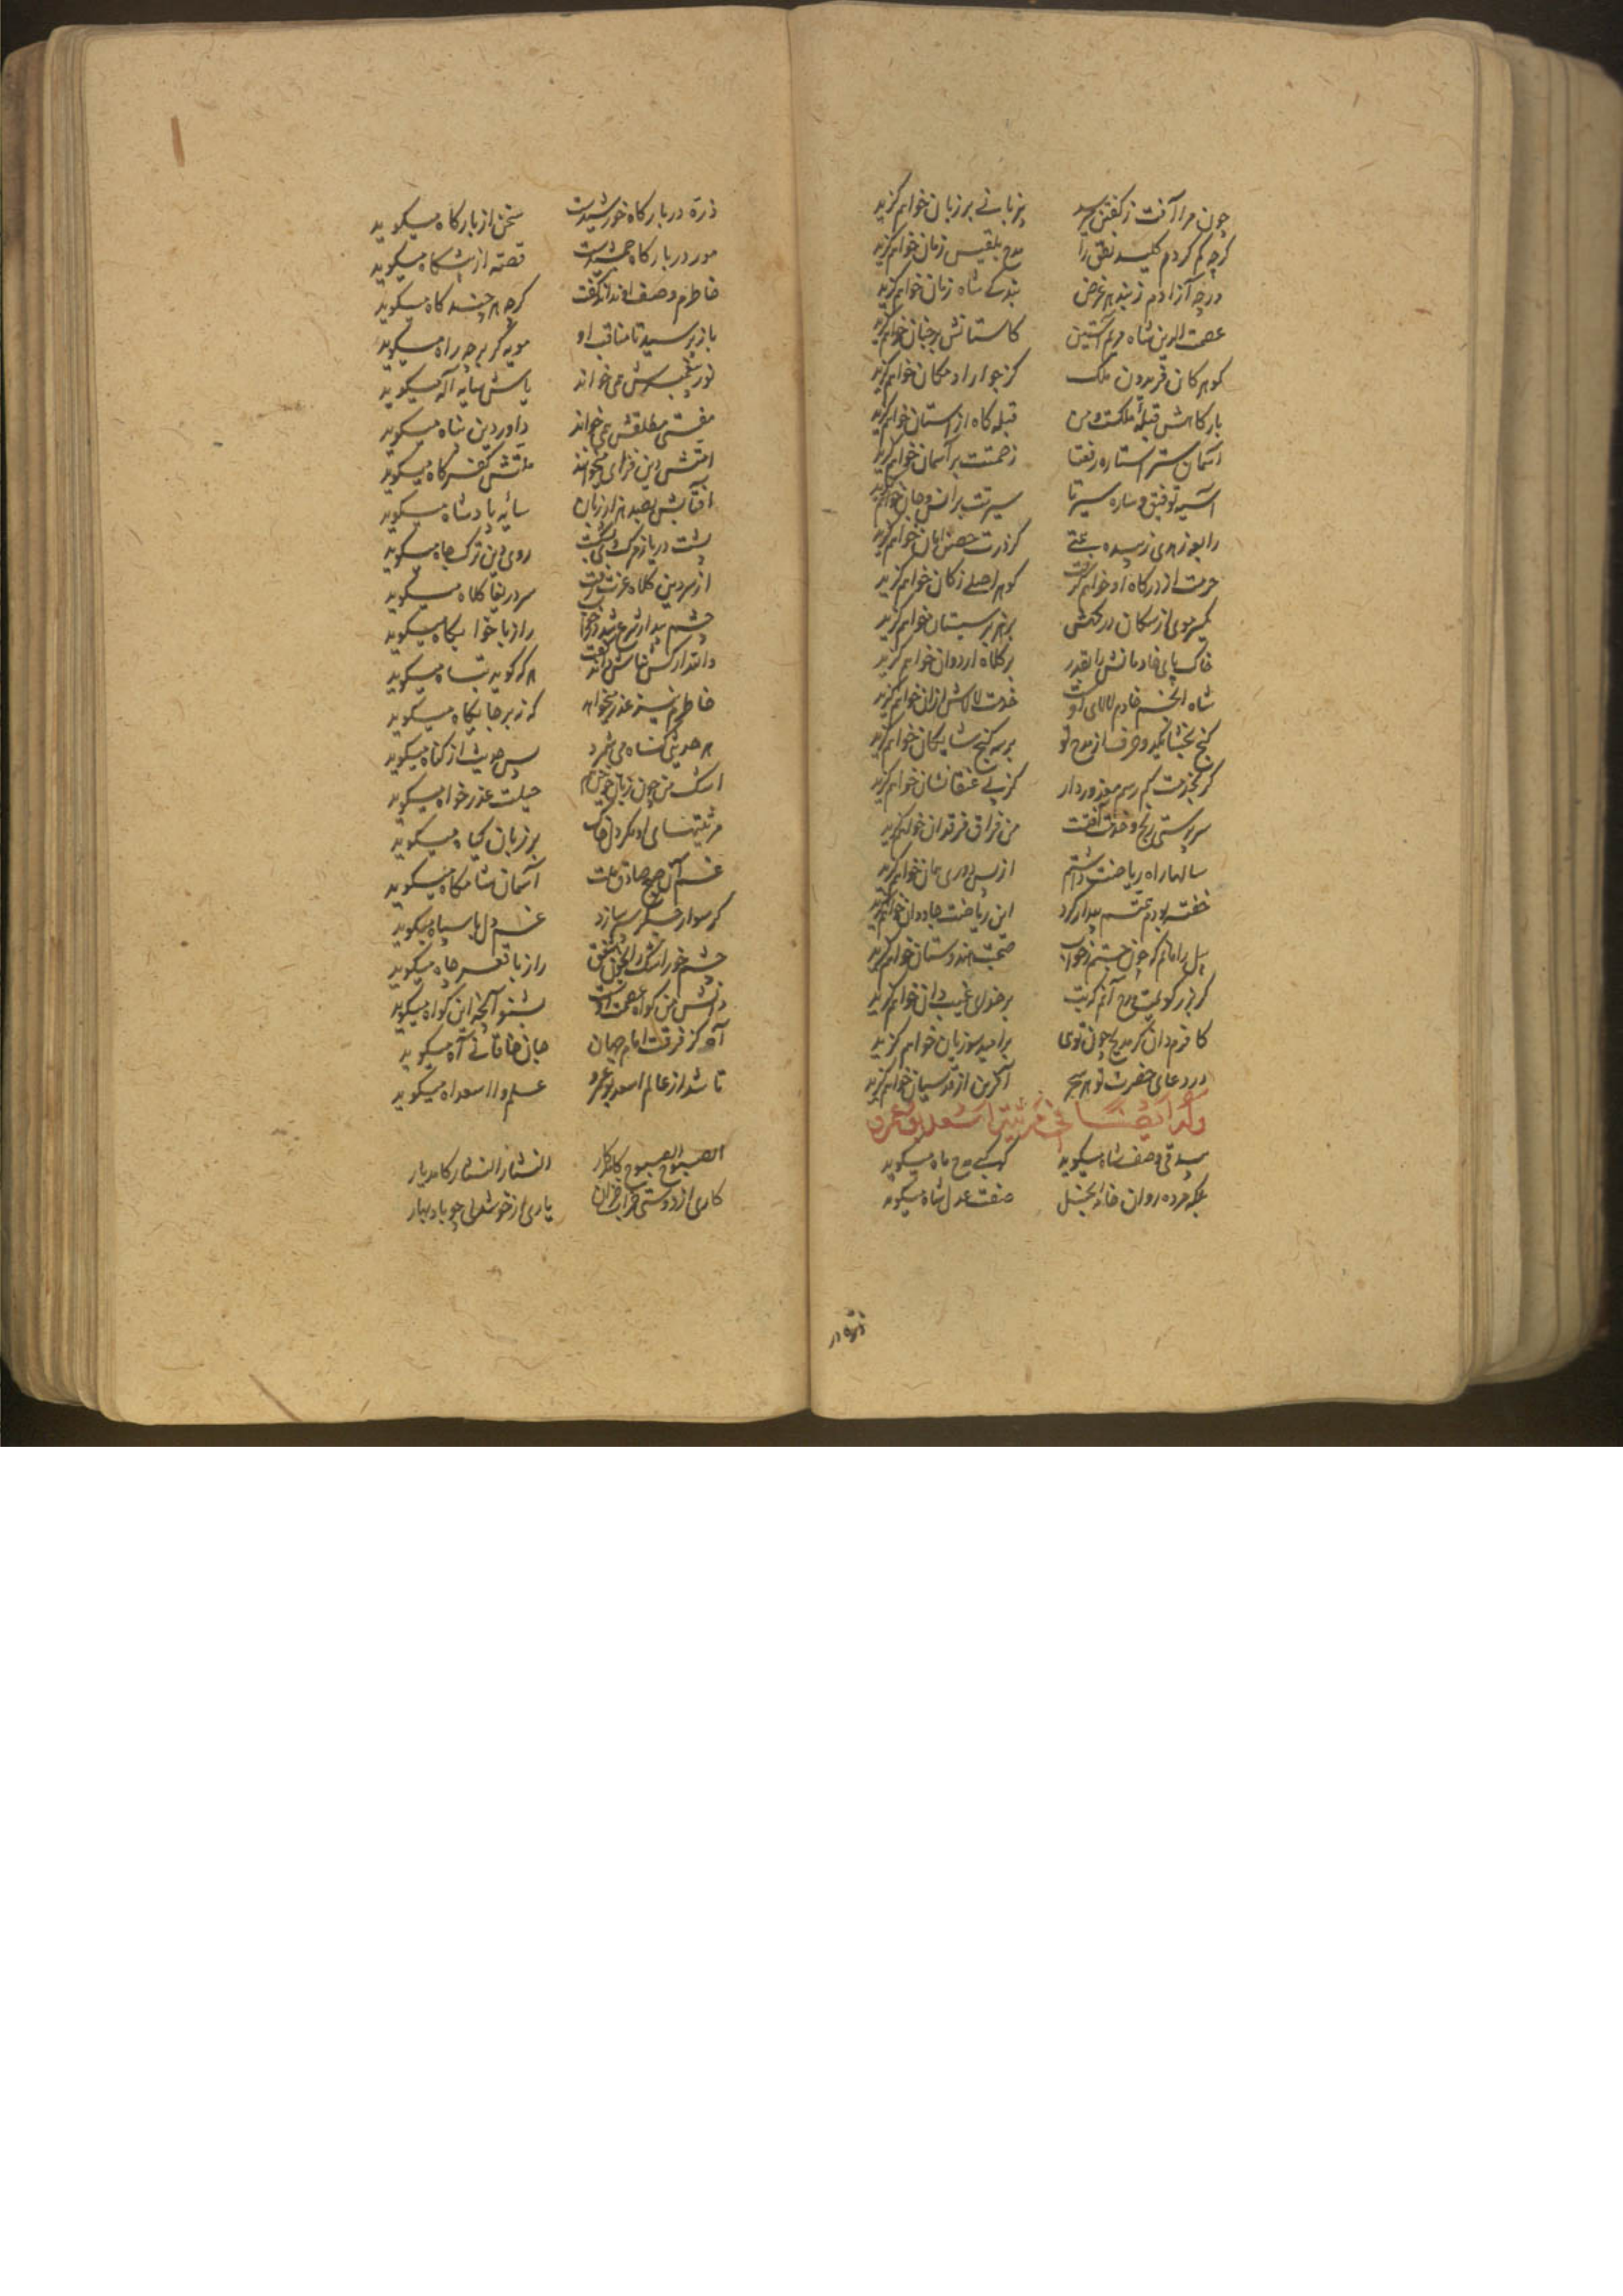 چون مرا آفت ز گفتن میرسد بیزبانی بر زبان خواهم گزید
گرچه گم کردم کلید نطق را مدح بلقیس زمان خواهم گزید
ورچه آزادم ز بند هر غرض بندگی شاه زنان خواهم گزید
عصمت الدین شاه مریم آستین کاستانش بر جنان خواهم گزید
گوهر کان فریدون ملک کز جوار او مکان خواهم گزید
بارگاهش قبله ملکست و من قبله گاه از آستان خواهم گزید
آسمان ستر و ستاره رفعتا زحمتت بر آسمان خواهم گزید
آسیه توفیق و ساره سیرتا سیرتت بر انس و جان خواهم گزید
رابعه زهدی زبیده همتی کز درت حصن امان خواهم گزید
حرمت از درگاه او خواهم گرفت گوهر اصلی ز کان خواهم گزید
یک سر موی از سگان درگهش بر هزبر سیستان خواهم گزید
خاک پای خادمانش را بقدر بر کلاه اردوان خواهم گزید
شاه انجم خادم لالای اوست خدمت لالاش ازان خواهم گزید
گنج بخشا یکدو حرف از مدح تو بر سه گنج شایگان خواهم گزید
گر بخدمت کم رسم معذور دار کز پی عنقا نشان خواهم گزید
سرپرستی رنج و خدمت آفتست من فراق فرقدان خواهم گزید
سالها راه ریاضت داشتم از پس دوری همان خواهم گزید
خفته بودم همتم بیدار کرد این ریاضت جاودان خواهم گزید
پیل را مانم که چون جستم ز خواب صحبت هندوستان خواهم گزید
گر بزر گویمت مدح آنم که بت بر خدای غیب دان خواهم گزید
کافرم دان گر مدیح چون توی بر امید سوزیان خواهم گزید
در دعای حضرت تو هر سحر آفرین از قدسیان خواهم گزید
وله ایضا فی مرثیة اسعد ابو عمرو
بیدقی وصف شاه میگوید کوکبی مدح ماه میگوید
بلکه مرده روان خانه بخیل صفت عدل شاه میگوید
ذره در
ذرّه در بارگاه خورشیدست سخن از بارگاه میگوید
مور در بارگاه جمشیدست قصه از پیشگاه میگوید
خاطرم وصف او نداند گفت گرچه هر چند گاه میگوید
باز پرسید تا مناقب او مویه گر بر چه راه میگوید
نور پیغمبرش همی خواند یاسش سایه آله میگوید
مفتی مطلقش همی خواند داور دین شاه میگوید
امتش دین فزای میخواند ملتش کفر کاه میگوید
آفتابش بصد هزار زبان سایه پادشاه میگوید
پشت دین از مرگ او شکست روی دین ترک جاه میگوید
از سر دین کلاه عزت رفت سر دریغا کلاه میگوید
چشم بیدار شرع شد در خواب راز با خوابگاه میگوید
داند ار کس ثناش داند گفت هر که گوید تباه میگوید
خاطرم نیز عذر میخواهد که نه بر جایگاه میگوید
هر حدیثی گناه می شمرد پس حدیث از گناه میگوید
اشک من چون زبان خونینم حیلت عذر خواه میگوید
مرثیتهای او مگر دل خاک بر زبان گیاه میگوید
غم آن صبح صادق ملت آسمان شامگاه میگوید
گر سوار خنگ سر سازد غم دل با سپاه میگوید
چشم خور اشک راند خون شفق راز با قعر چاه میگوید
دانش من گواه عصمت اوست بشنو آنچه این گواه میگوید
آه کز فرقت امام جهان جان خاقانی آه میگوید
تا شد از عالم اسعد بوعمرو علم وا اسعداه میگوید
الصبوح الصبوح کامد کار النثار النثار کامد یار
کاری از دوستی چو آب خزان یاری از خوشدلی چو باد بهار